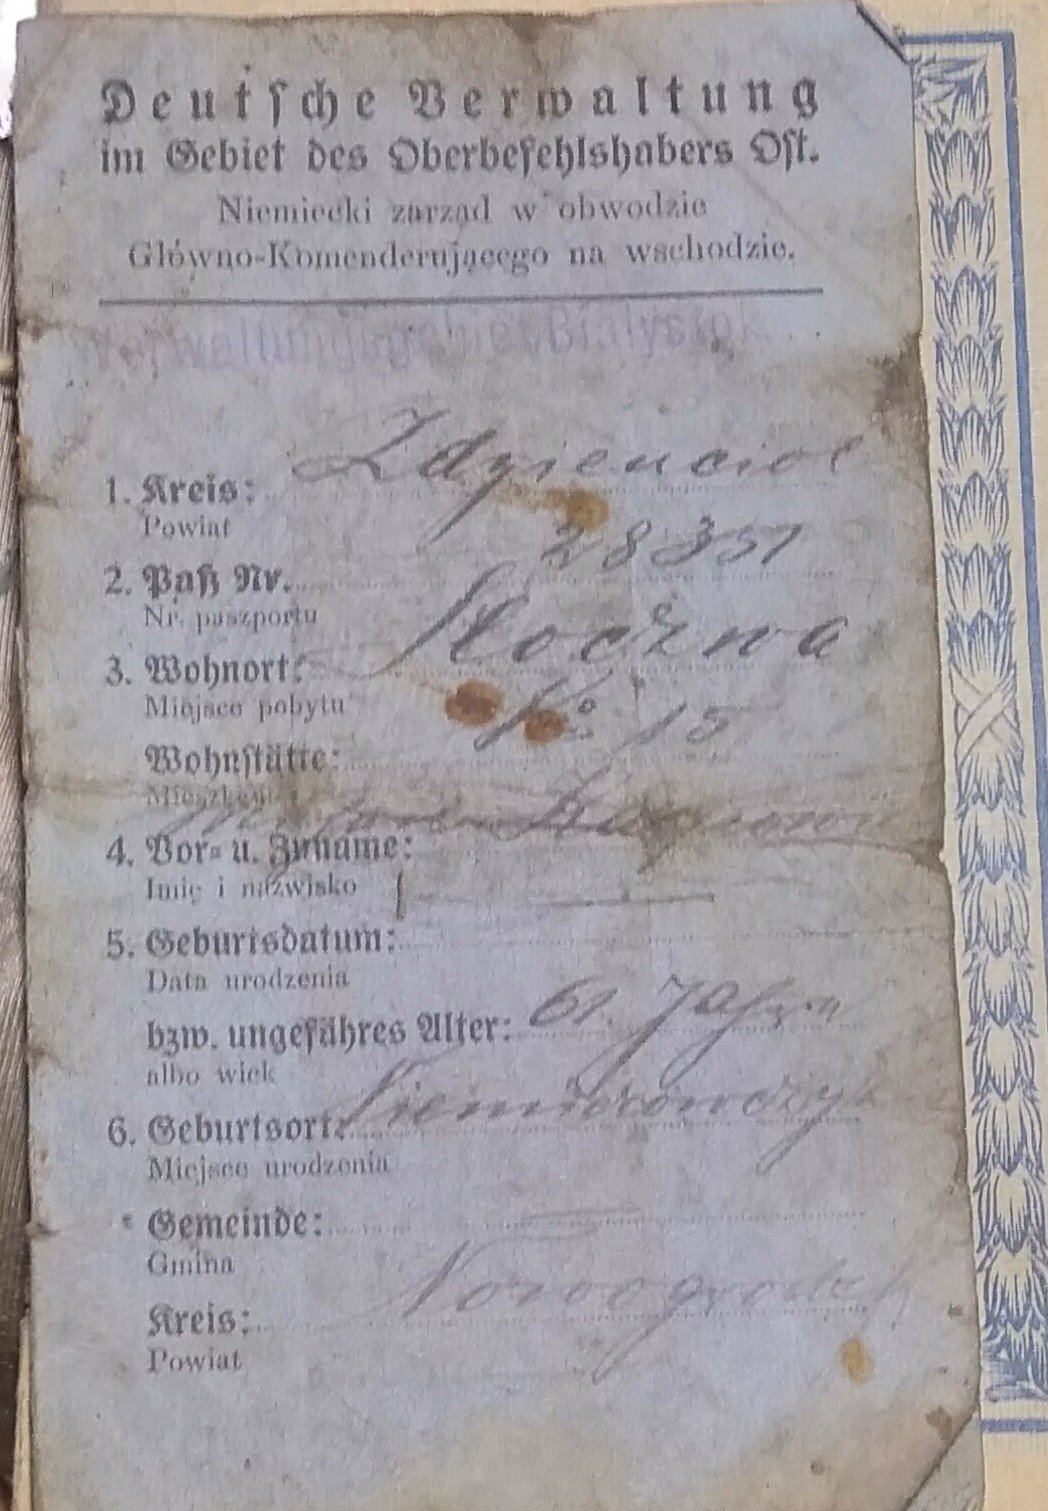 Deutsche Verwaltung
im Gebiet des Oberbefehlshabers Ost.
Niemiecki zarząd w obwodzie
Główno-Komenderującego na wschodzie.
Verwaltungsgebiet Bialystok
1. Kreis: Zdzienciol
Powiat
2. Paß Nr. 28351
Nr. paszportu
3. Wohnort:
Miejsce pobytu
Wohnstätte: No 15
Mieszkanie
4. Vor- u. Zuname:
Imię i nazwisko
5. Geburtsdatum:
Data urodzenia
bzw. ungefähres Alter: 61. Jahren
albo wiek
6. Geburtsort:
Miejsce urodzenia
Gemeinde: —
Gmina
Kreis: Nowogrodek
Powiat